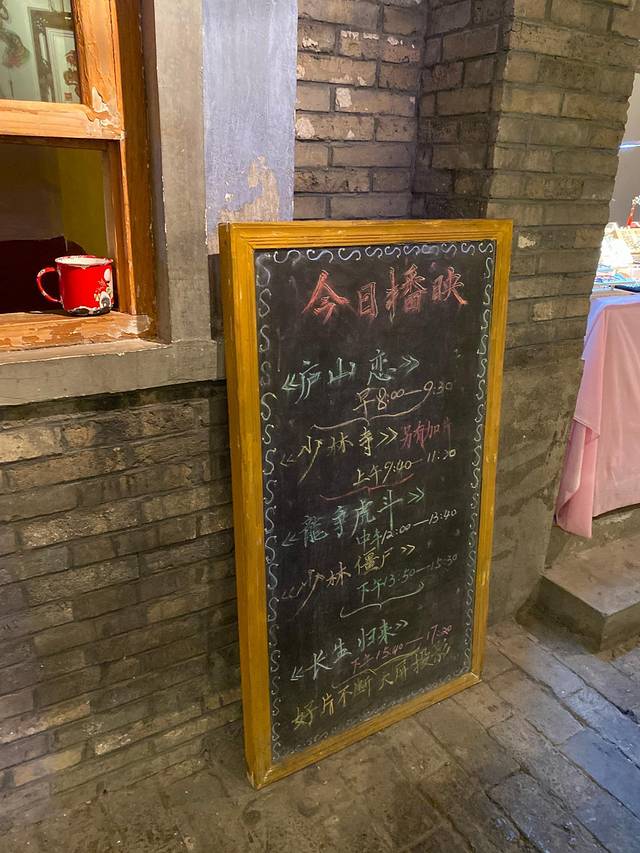 今日播映
《庐山恋》
早8:00—9:30
《少林寺》另有加片
上午9:40—11:20
《龍争虎斗》
中午12:00—13:40
《少林僵尸》
下午13:50—15:30
《长生归来》
下午15:40—17:20
好片不断大屏投影